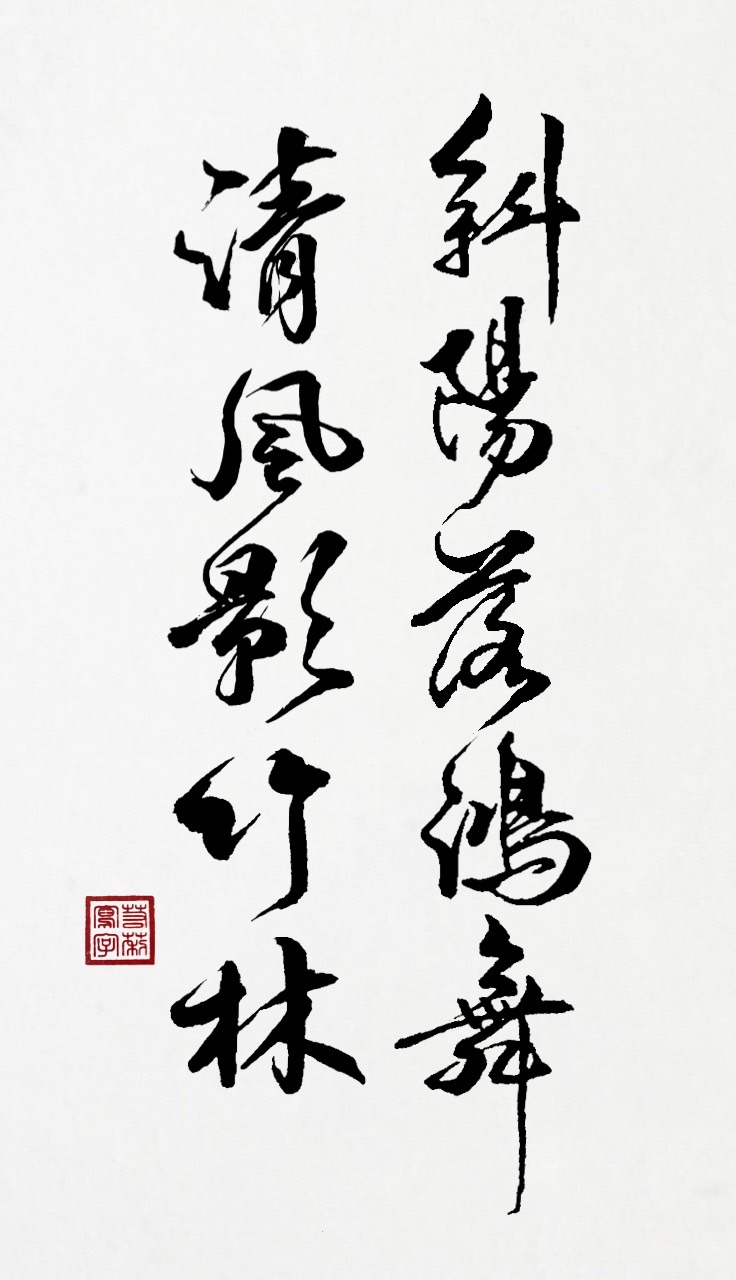 斜陽落鴻舞
清風影竹林